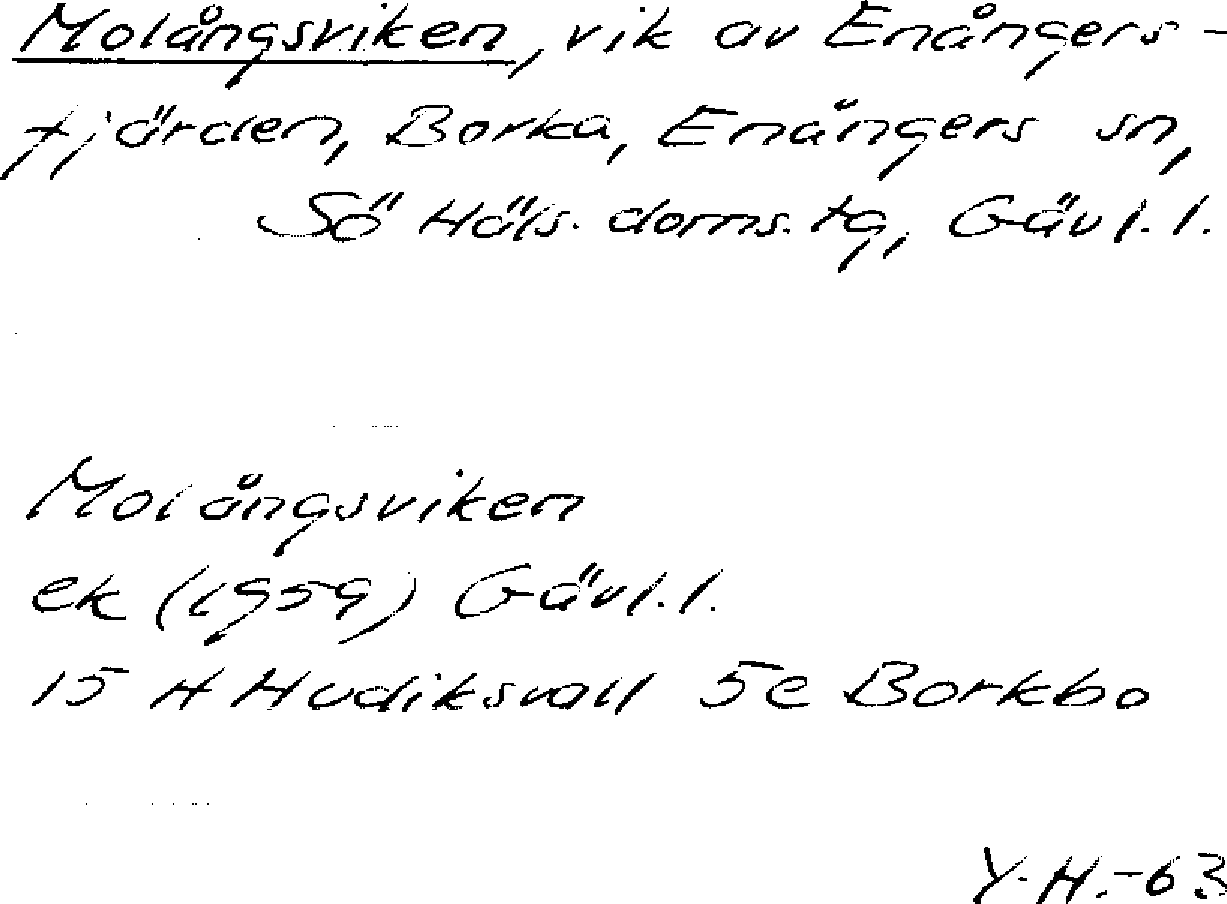 Molångsviken, vik av Enångers-
fjärden, Borka, Enångers sn,
Sö Häls. doms. tg, Gävl. l.
Molångsviken
ek (1959) Gävl. l.
15 H Hudiksvall 5e Borkbo
Y. H. -63